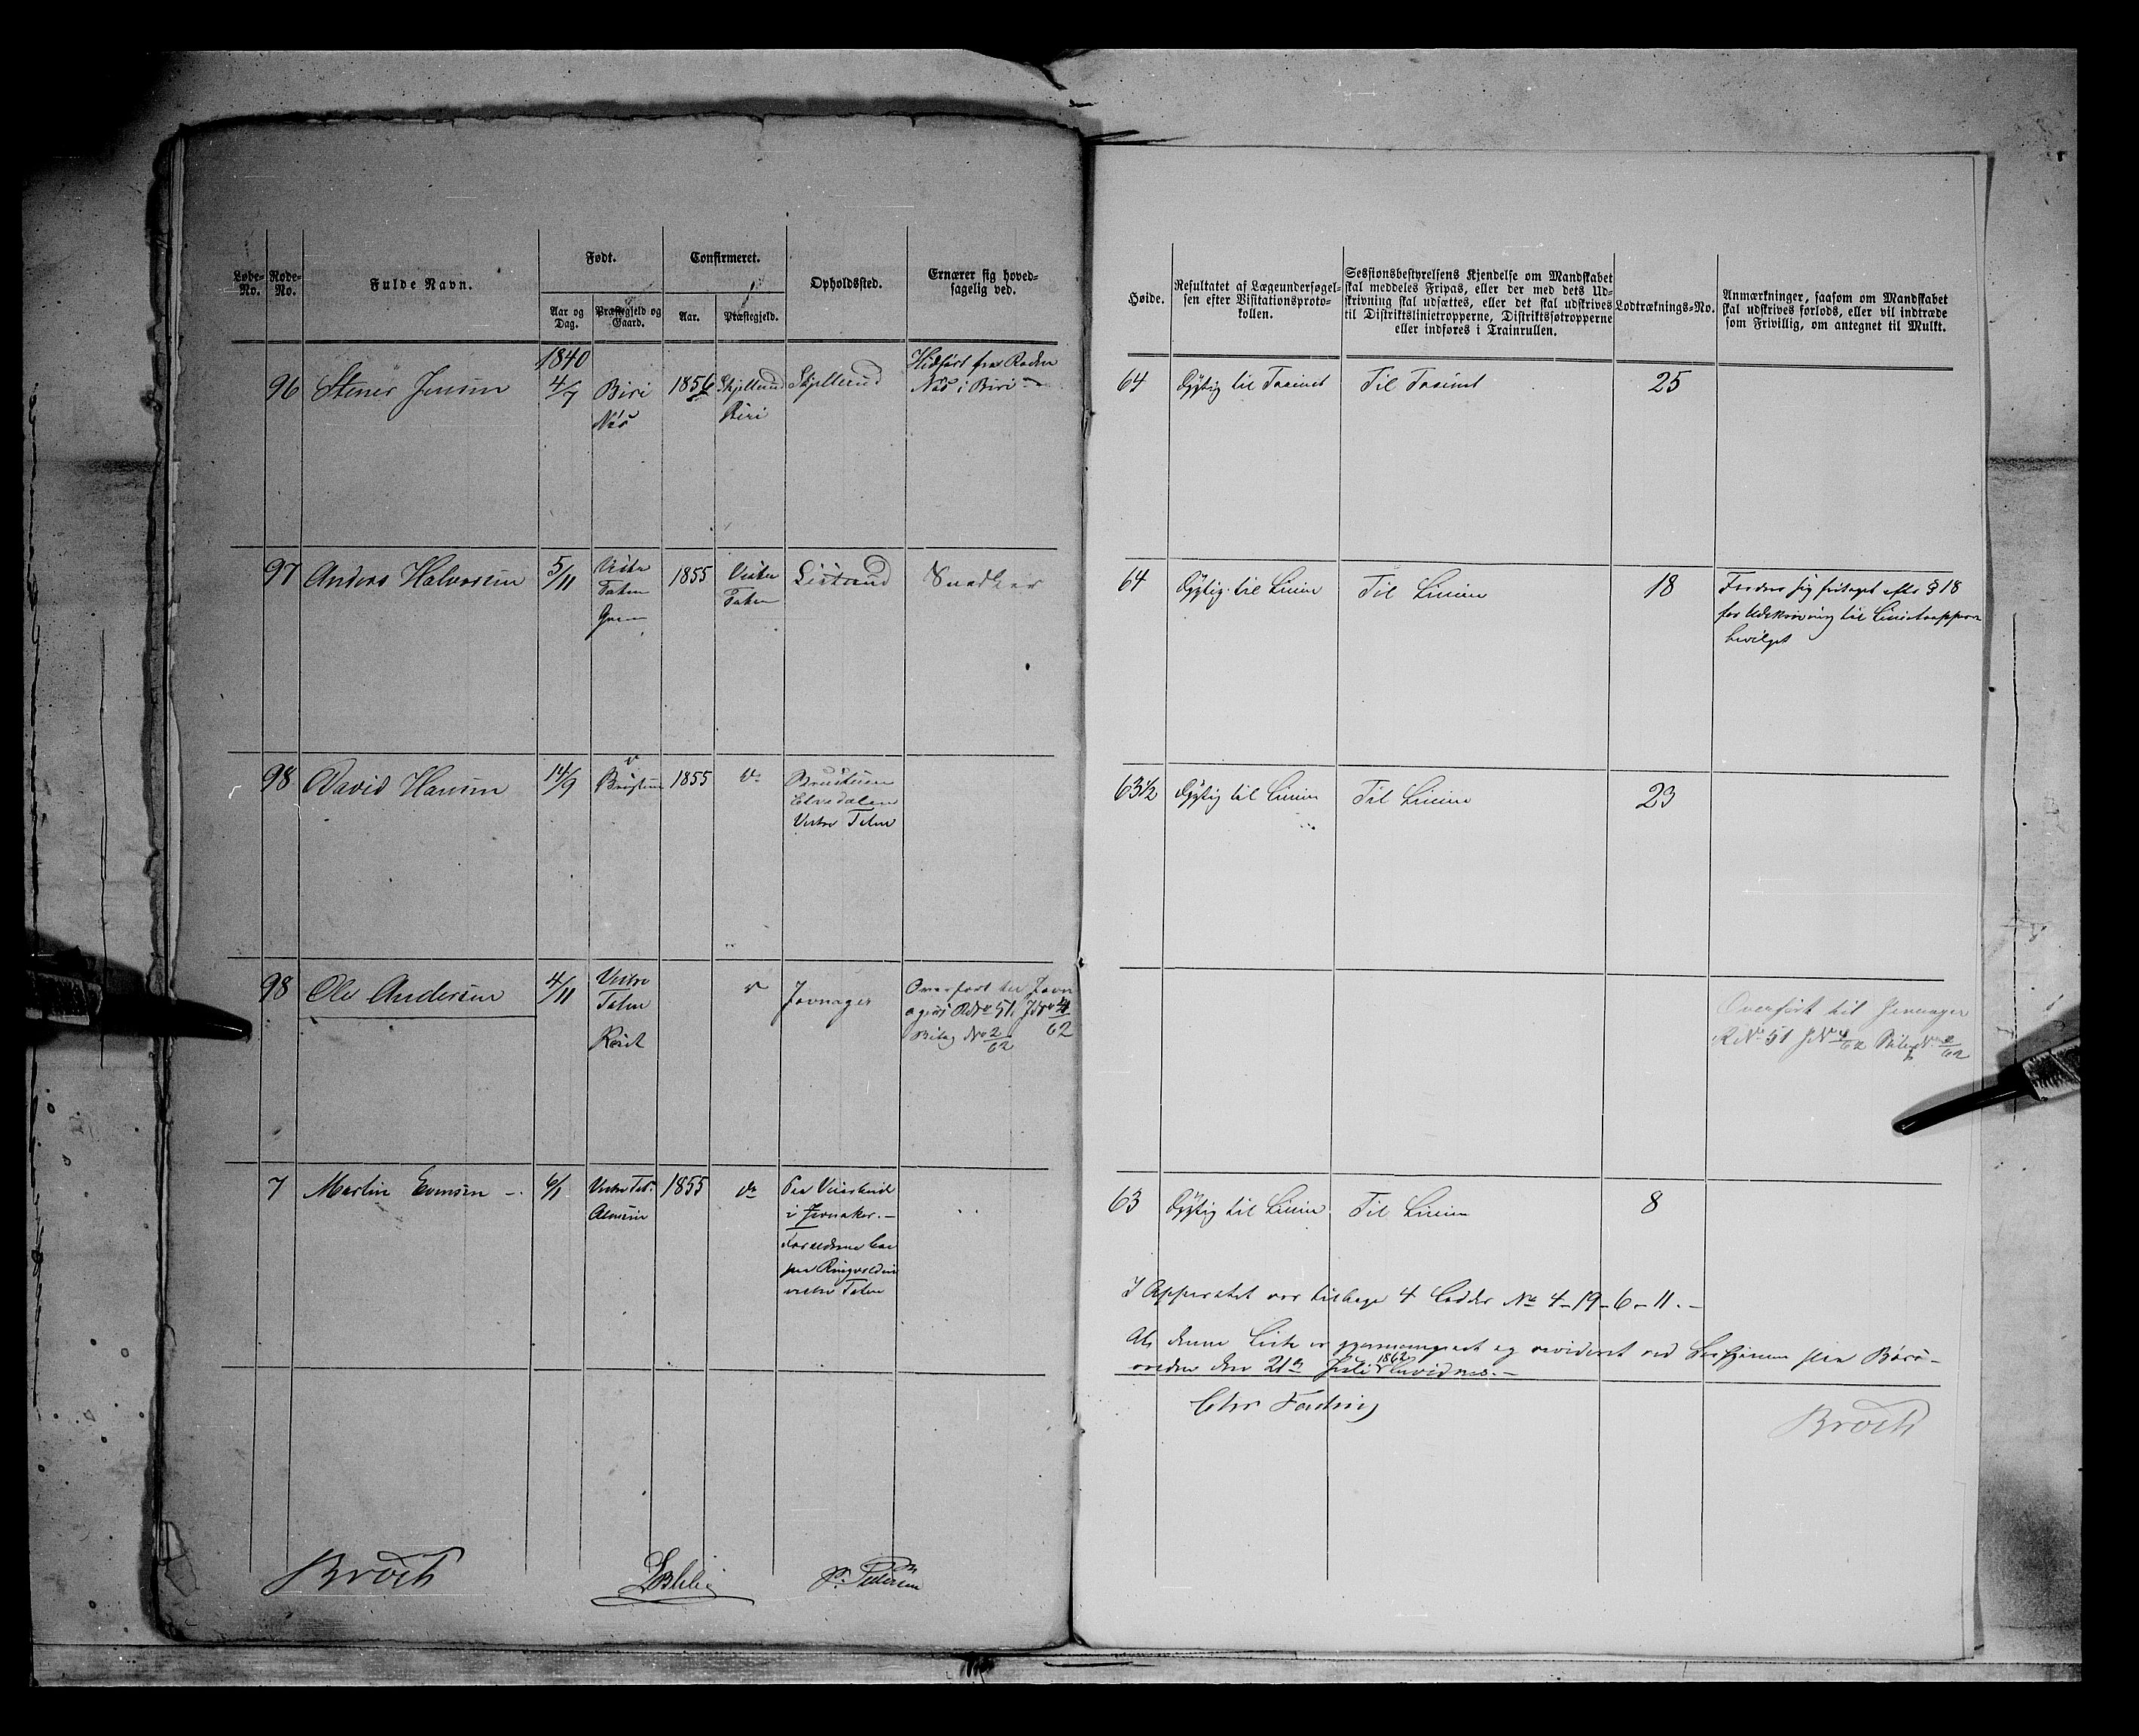 Løbe-No.
Røde-No.
Fulde Navn.
Født.
Aar og Dag.
Præstegjeld og Gaard.
Confirmeret.
Aar.
Præstegjeld.
Opholdssted.
Ernærer sig hoved-
sagelig ved.
Høide.
Resultatet af Lægeundersøgel-
sen efter Visitationsproto-
kollen.
Sessionsbestyrelsens Kjendelse om Mandskabet
skal meddeles Fripas, eller der med dets Ud-
skrivning skal udsættes, eller det skal udskrives
til Distriktslinietropperne, Distriktsøtropperne
eller indføres i Trainrullen.
Lodtræknings-No.
Anmærkninger, saasom om Mandskabet
skal udskrives forlods, eller vil indtræde
som Frivillig, om antegnet til Mulkt.
1840
96 Stener Jensen 4/7 Biri 1856 Skjellerud
Næs Biri
Hidført fra Roden
Næs i Biri
64 Dygtig til Trainet Til Trainet 25
97 Anders Halvorsen 5/11 Vestre
Toten
1855 Vestre
Toten
Snedker
64 Dygtig til Linien Til Linien 18
fritaget efter § 18
for Udskrivning til Linietropperne
bevilget
98 David Hansen 14/9 1855 do
Vestre Toten
63½ Dygtig til Linien Til Linien 23
98 Ole Andersen 4/11 Vestre
Toten
Jevnager
Overført til Jevn
ager RdNo 51 JNo 4/62
Bilag No 2/62
Overført til Jevnager
R No 51 JNo 4/62 Bilag No 2/62
7 Martin Evensen 6/1 Vestre Tot. 1855 do
i Jevnaker.
Forældrene boe
paa Ringvolden
vestre Toten
63 Dygtig til Linien Til Linien 8
I Apparatet var tilbage 4 Lodder No 4-19-6-11.-
At denne Liste er gjennemgaaet og revideret ved
den 21de Juli 1862 bevidnes.-
Broch
Broch
P. Pedersen